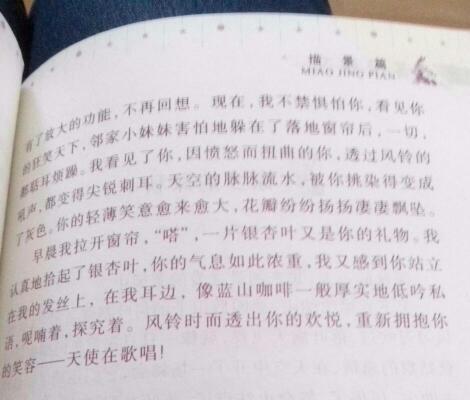 描景篇
MIAO JING PIAN
有了放大的功能,不再回想。现在,我不禁惧怕你,看见你
的狂笑天下,邻家小妹妹害怕地躲在了落地窗帘后,一切,
都聒耳烦躁。我看见了你,因愤怒而扭曲的你,透过风铃的
吼声,都变得尖锐刺耳。天空的脉脉流水,被你挑染得变成
了灰色。你的轻薄笑意愈来愈大,花瓣纷纷扬扬凄凄飘坠。
早晨我拉开窗帘,“嗒”,一片银杏叶又是你的礼物。我
认真地拾起了银杏叶,你的气息如此浓重,我又感到你站立
在我的发丝上,在我耳边,像蓝山咖啡一般厚实地低吟私
语,呢喃着,探究着。风铃时而透出你的欢悦,重新拥抱你
的笑容——天使在歌唱!